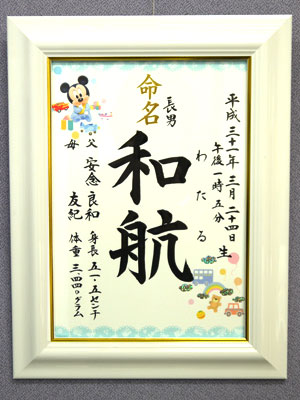 平成三十一年三月二十四日生
午後一時五分
わたる
命名
長男
和航
父 安念良和
母 友紀
身長 五一・五センチ
体重 三、四四〇グラム